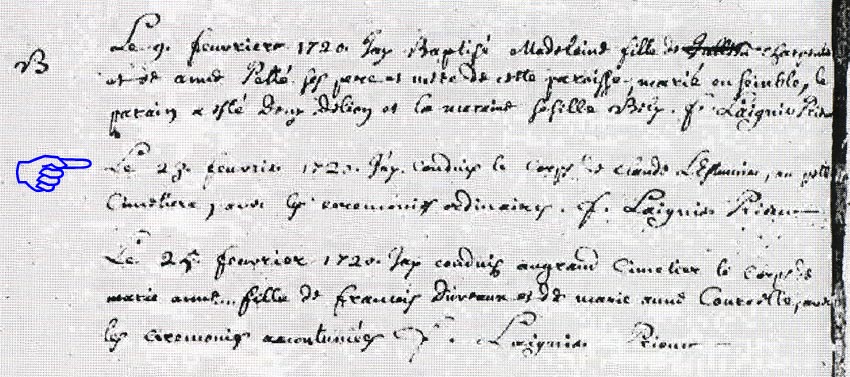 B
Le 9. feuvriere 1720. Jay Baptisé Madeleine fille de charpentie
et de anne Pellé ses pere et mere de cette paroisse, marié ensemble, le
parain a esté Denis et la maraine f. Laignie Prieur
Le 23. feuvrie 1720. Jay conduis le corps de claude au petit
Cimetiere, avec les ceremonies ordinaires. f. Laignie Prieur
Le 25. feuvrier 1720. Jay conduis au grand Cimetier le corps de
marie anne fille de francois et de marie anne avec
les ceremonies acoutumées f. Laignie Prieur